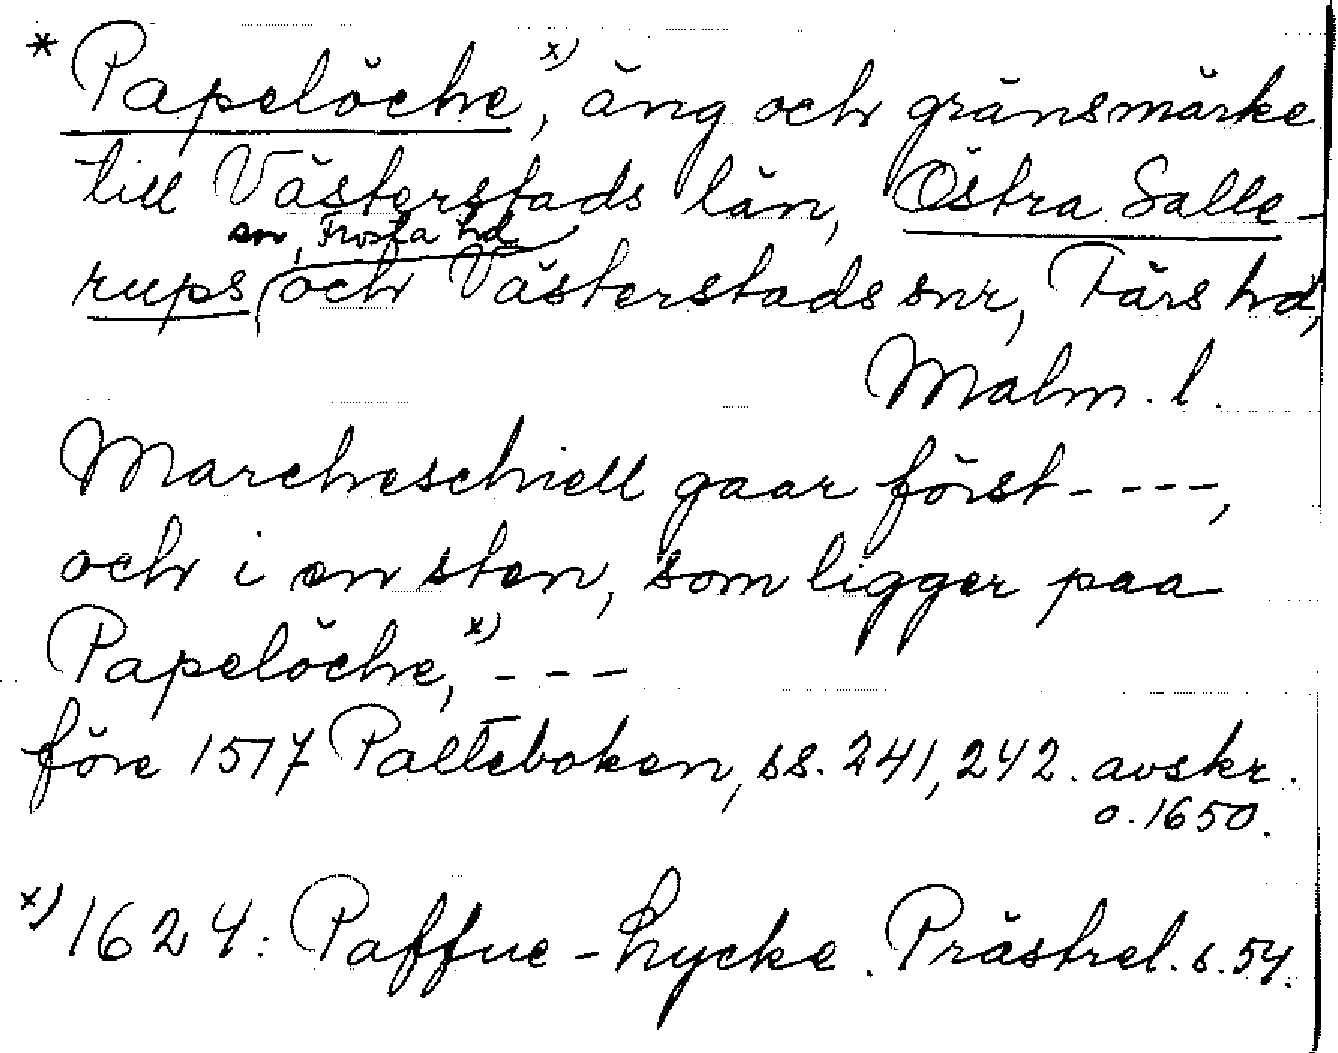 * Papelöche,ˣ⁾ äng och gränsmärke
till Västerstads län, Östra Salle-
sn, Frosta hd
rups och Västerstads snr, Färs hd,
Malm. l.
Marcheschiell gaar först ----,
och i en sten, som ligger paa
Papelöche,ˣ⁾ ---
före 1517 Palteboken, ss. 241, 242. avskr.
o. 1650.
ˣ⁾ 1624: Paffue-Lycke. Prästrel. s. 54.